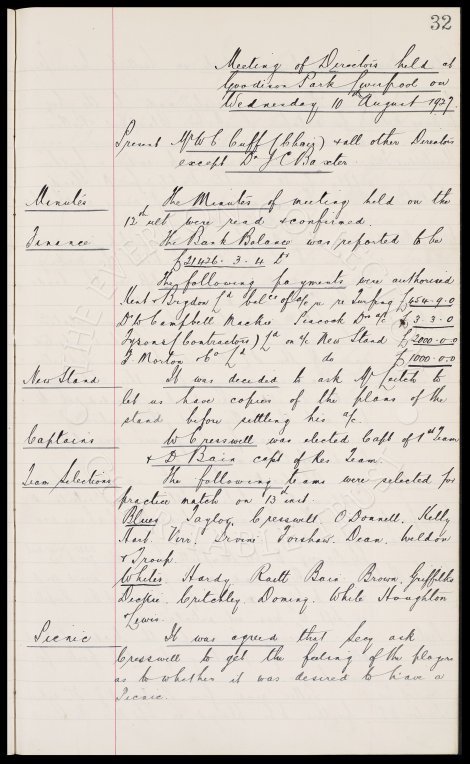 32
Meeting of Directors held at
Goodison Park Liverpool on
Wednesday 10th August 1927.
Present Mr W C Cuff (Chair) & all other Directors
except Dr J C Baxter.
Minutes The Minutes of meeting held on the
12th ult were read & confirmed.
Finance The Bank Balance was reported to be
£21426 - 3 - 4 Dr
The following payments were authorised
Kent & Brydon Ld balce of a/c re re Turfing £454-9-0
Dr W Campbell Mackie Peacock Dr a/c £3-3-0
Tysons (Contractors) Ld on a/c New Stand £2000-0-0
F Morton & Co Ld do £1000-0-0
New Stand It was decided to ask Mr Leitch to
let us have copies of the plans of the
stand before settling his a/c.
Captains W Cresswell was elected Capt of 1st Team
& D Bain capt of Res Team.
Team Selections The following teams were selected for
practice match on 13th inst.
Blues Taylor, Cresswell, O'Donnell, Kelly
Hart, Virr, Irvine, Forshaw, Dean, Weldon
& Troup
Whites Hardy, Raitt Bain Brown, Griffiths
Critchley, Doming, While Houghton
& Lewis.
Picnic It was agreed that Secy ask
Cresswell to get the feeling of the players
as to whether it was desired to have a
Picnic.